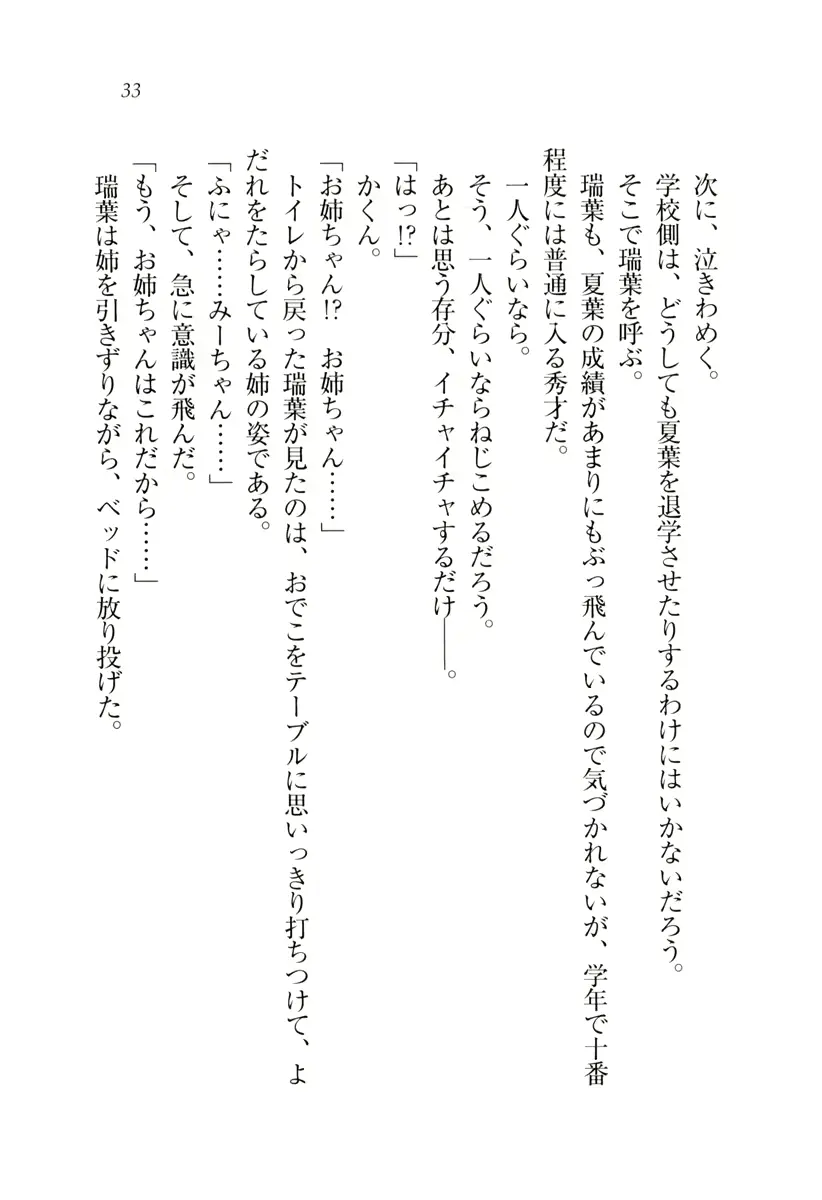 33
次に、泣きわめく。
学校側は、どうしても夏葉を退学させたりするわけにはいかないだろう。
そこで瑞葉を呼ぶ。
瑞葉も、夏葉の成績があまりにもぶっ飛んでいるので気づかれないが、学年で十番
程度には普通に入る秀才だ。
一人ぐらいなら。
そう、一人ぐらいならねじこめるだろう。
あとは思う存分、イチャイチャするだけ――。
「はっ!?」
かくん。
「お姉ちゃん!?　お姉ちゃん……」
トイレから戻った瑞葉が見たのは、おでこをテーブルに思いっきり打ちつけて、よ
だれをたらしている姉の姿である。
「ふにゃ……みーちゃん……」
そして、急に意識が飛んだ。
「もう、お姉ちゃんはこれだから……」
瑞葉は姉を引きずりながら、ベッドに放り投げた。